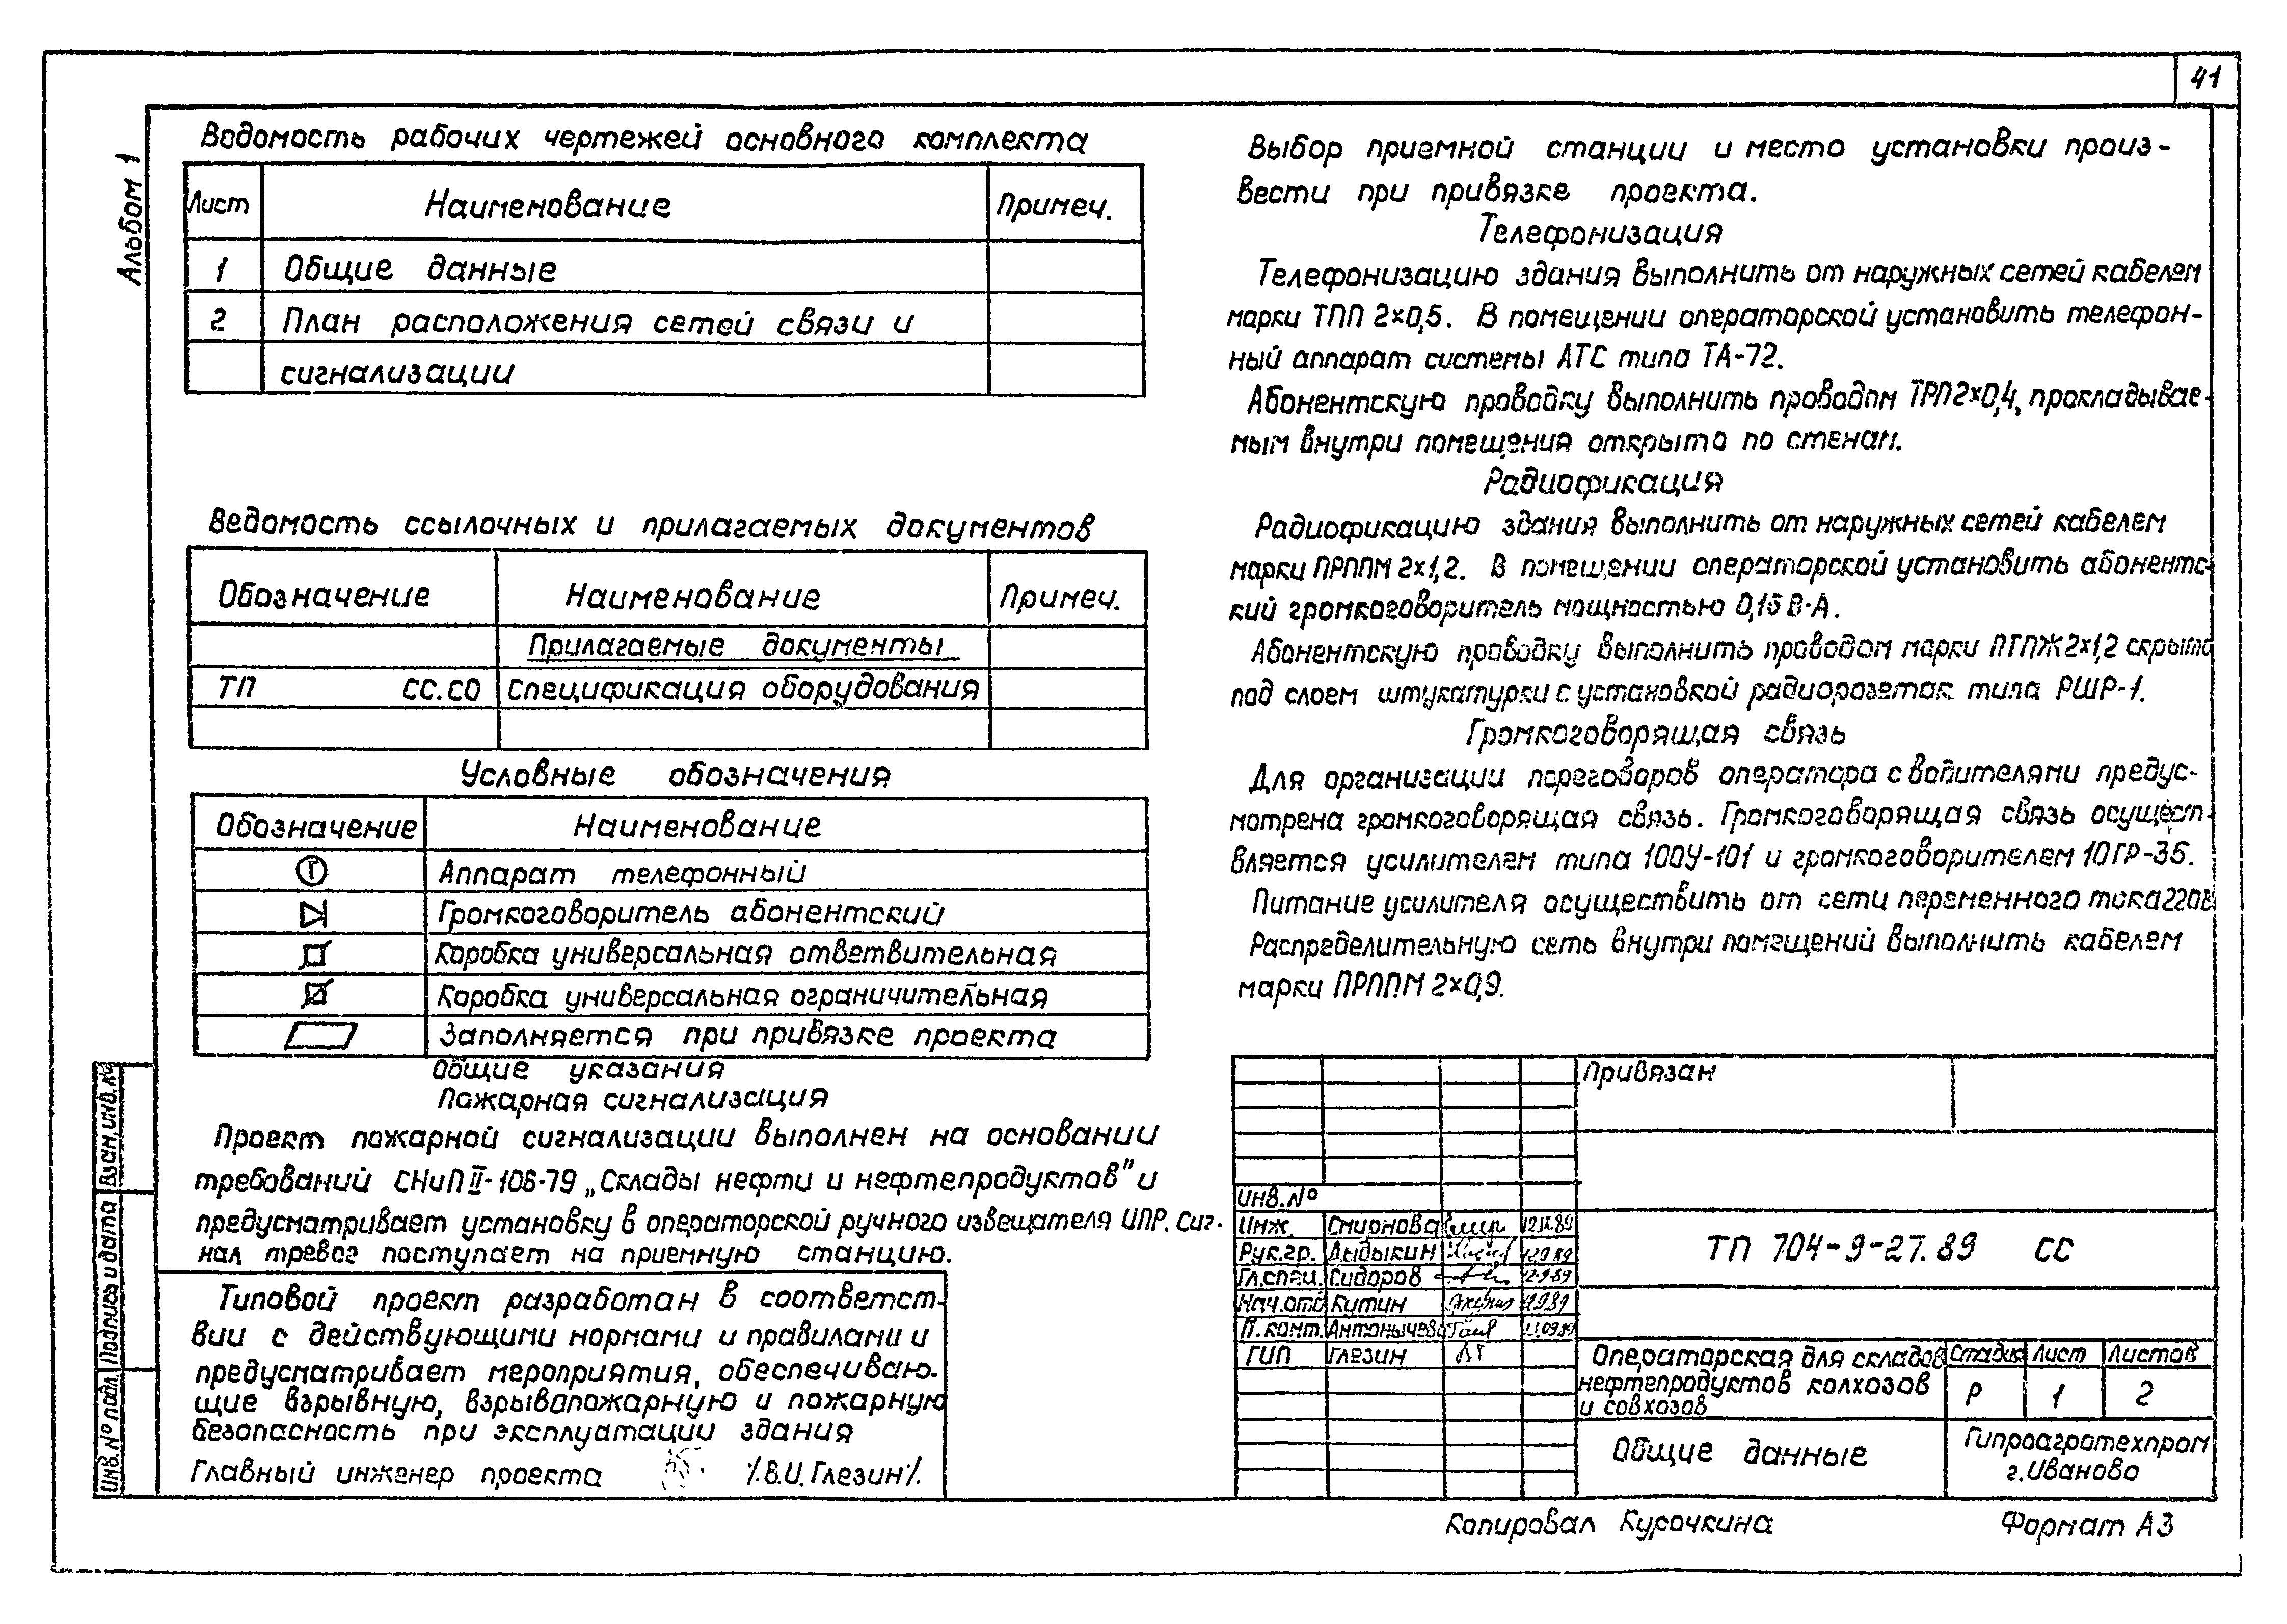 41
Альбом 1
Ведомость рабочих чертежей основного комплекта
Лист Наименование Примеч.
1 Общие данные
2 План расположения сетей связи и
сигнализации
Ведомость ссылочных и прилагаемых документов
Обозначение Наименование Примеч.
Прилагаемые документы
ТП СС.СО Спецификация оборудования
Условные обозначения
Обозначение Наименование
Аппарат телефонный
Громкоговоритель абонентский
Коробка универсальная ответвительная
Коробка универсальная ограничительная
Заполняется при привязке проекта
Общие указания
Пожарная сигнализация
Проект пожарной сигнализации выполнен на основании
требований СНиП II-106-79 „Склады нефти и нефтепродуктов" и
предусматривает установку в операторской ручного извещателя ИПР. Сиг-
нал тревог поступает на приемную станцию.
Типовой проект разработан в соответст-
вии с действующими нормами и правилами и
предусматривает мероприятия, обеспечиваю-
щие взрывную, взрывопожарную и пожарную
безопасность при эксплуатации здания
Главный инженер проекта /.В.И.Глезин/.
Выбор приемной станции и место установки произ-
вести при привязке проекта.
Телефонизация
Телефонизацию здания выполнить от наружных сетей кабелем
марки ТПП 2×0,5. В помещении операторской установить телефон-
ный аппарат системы АТС типа ТА-72.
Абонентскую проводку выполнить проводом ТРП2×0,4, прокладывае-
мым внутри помещения открыто по стенам.
Радиофикация
Радиофикацию здания выполнить от наружных сетей кабелем
марки ПРППМ 2×1,2. В помещении операторской установить абонентс-
кий громкоговоритель мощностью 0,15 В·А.
Абонентскую проводку выполнить проводом марки ПТПЖ 2×1,2 скрыто
под слоем штукатурки с установкой радиорозеток типа РШР-1.
Громкоговорящая связь
Для организации переговоров оператора с водителями предус-
мотрена громкоговорящая связь. Громкоговорящая связь осущест-
вляется усилителем типа 100У-101 и громкоговорителем 10ГР-36.
Питание усилителя осуществить от сети переменного тока 220В
Распределительную сеть внутри помещений выполнить кабелем
марки ПРППМ 2×0,9.
Привязан
Инв.№
Инж. Смирнова 12.IX.89
Рук.гр. Дыдыкин 12.9.89
Гл.спец. Сидоров 12-9-89
Нач.отд Кутин 12.9.89
Н.конт. Антонычева
ГИП Глезин
ТП 704-9-27.89 СС
Операторская для складов
нефтепродуктов колхозов
и совхозов
Стадия Лист Листов
Р 1 2
Общие данные
Гипроагротехпром
г.Иваново
Инв.№ подл. Подпись и дата Взам.инв.№
Копировал Курочкина Формат А3